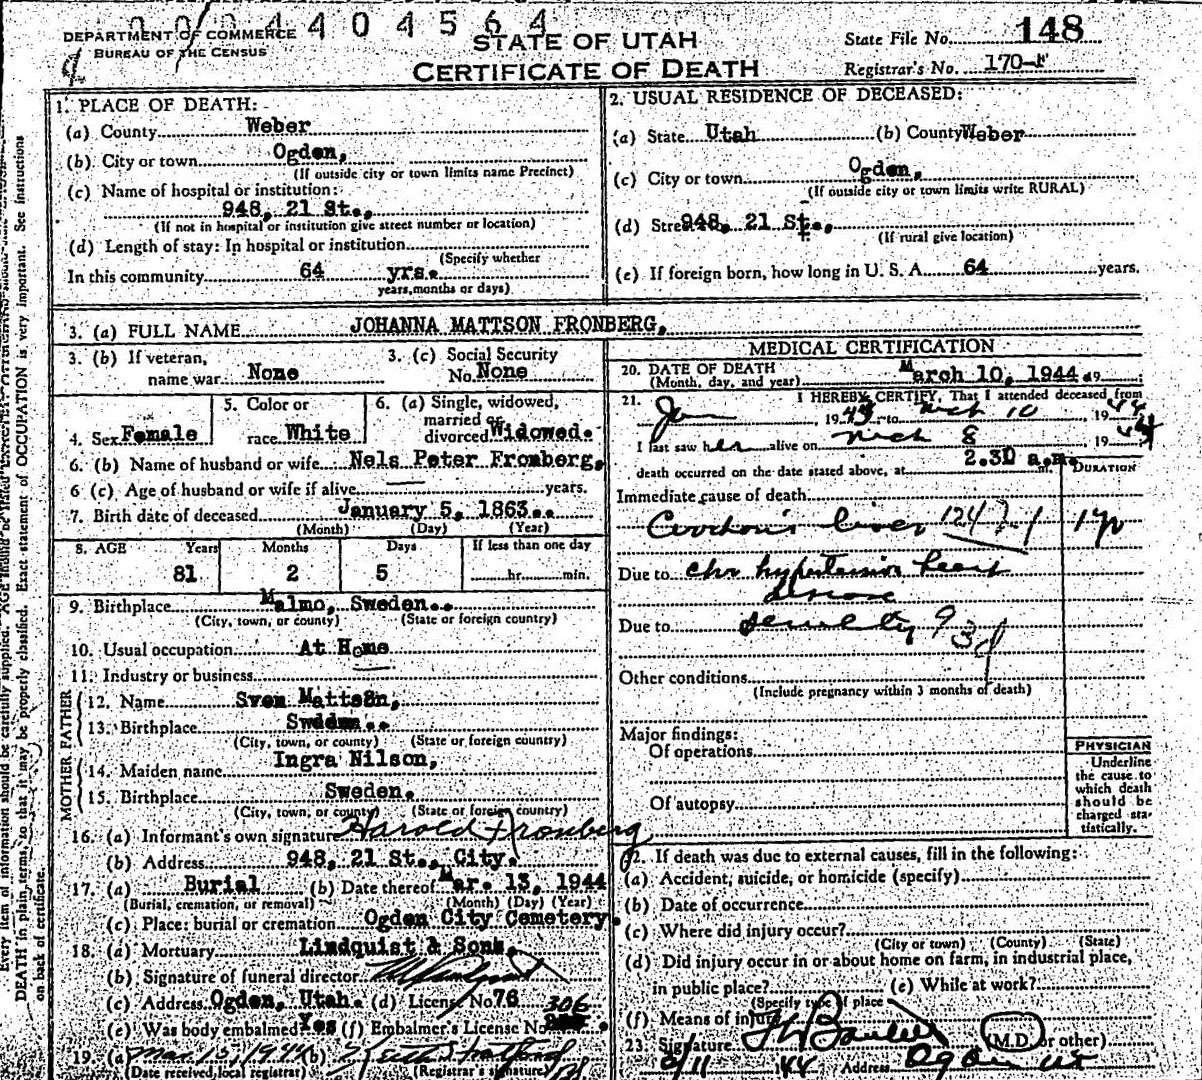 0 0 2 4 4 0 4 5 6 4
DEPARTMENT OF COMMERCE
BUREAU OF THE CENSUS
STATE OF UTAH
CERTIFICATE OF DEATH
State File No. 148
Registrar's No. 170-
1. PLACE OF DEATH:
(a) County Weber
(b) City or town Ogden,
(If outside city or town limits name Precinct)
(c) Name of hospital or institution:
948, 21 St.,
(If not in hospital or institution give street number or location)
(d) Length of stay: In hospital or institution
(Specify whether
In this community 64 yrs.
years, months or days)
2. USUAL RESIDENCE OF DECEASED:
(a) State Utah (b) County Weber
(c) City or town Ogden,
(If outside city or town limits write RURAL)
(d) Street 948, 21 St.,
(If rural give location)
(e) If foreign born, how long in U. S. A. 64 years.
3. (a) FULL NAME JOHANNA MATTSON FRONBERG,
3. (b) If veteran,
name war None
3. (c) Social Security
No. None
4. Sex Female
5. Color or
race White
6. (a) Single, widowed,
married or
divorced Widowed.
6. (b) Name of husband or wife Nels Peter Fromberg,
6 (c) Age of husband or wife if alive years.
7. Birth date of deceased January 5, 1863..
(Month) (Day) (Year)
8. AGE Years Months Days If less than one day
81 2 5 hr. min.
9. Birthplace Malmo, Sweden..
(City, town, or county) (State or foreign country)
10. Usual occupation At Home
11. Industry or business
FATHER
12. Name Sven Mattson,
13. Birthplace Sweden..
(City, town, or county) (State or foreign country)
MOTHER
14. Maiden name Ingra Nilson,
15. Birthplace Sweden.
(City, town, or county) (State or foreign country)
16. (a) Informant's own signature Harold Fronberg
(b) Address 948, 21 St., City.
17. (a) Burial (b) Date thereof Mar. 13, 1944
(Burial, cremation, or removal) (Month) (Day) (Year)
(c) Place: burial or cremation Ogden City Cemetery.
18. (a) Mortuary Lindquist & Sons.
(b) Signature of funeral director
(c) Address Ogden, Utah. (d) License No 76
(e) Was body embalmed Yes (f) Embalmer's License No 306
19. (a) Mar. 13, 1944 (b)
(Date received local registrar) (Registrar's signature)
MEDICAL CERTIFICATION
20. DATE OF DEATH
(Month, day, and year) March 10, 1944. 19
21. I HEREBY CERTIFY, That I attended deceased from
Jan 1943, to Mch 10 1944
I last saw her alive on Mch 8 1944
death occurred on the date stated above, at 2.30 a.m. m.
DURATION
Immediate cause of death
liver 124
Due to chr hypertensive heart
disease
Due to senility 93d
Other conditions
(Include pregnancy within 3 months of death)
Major findings:
Of operations
Of autopsy
PHYSICIAN
Underline
the cause to
which death
should be
charged sta-
tistically.
22. If death was due to external causes, fill in the following:
(a) Accident, suicide, or homicide (specify)
(b) Date of occurrence
(c) Where did injury occur?
(City or town) (County) (State)
(d) Did injury occur in or about home on farm, in industrial place,
in public place? (e) While at work?
(Specify type of place
(f) Means of injury
23. Signature (M.D. or other)
44 Address Ogden Ut
Every item of information should be carefully supplied.
DEATH in plain terms, so that it may be properly classified. Exact statement of OCCUPATION is very important. See instructions
on back of certificate.